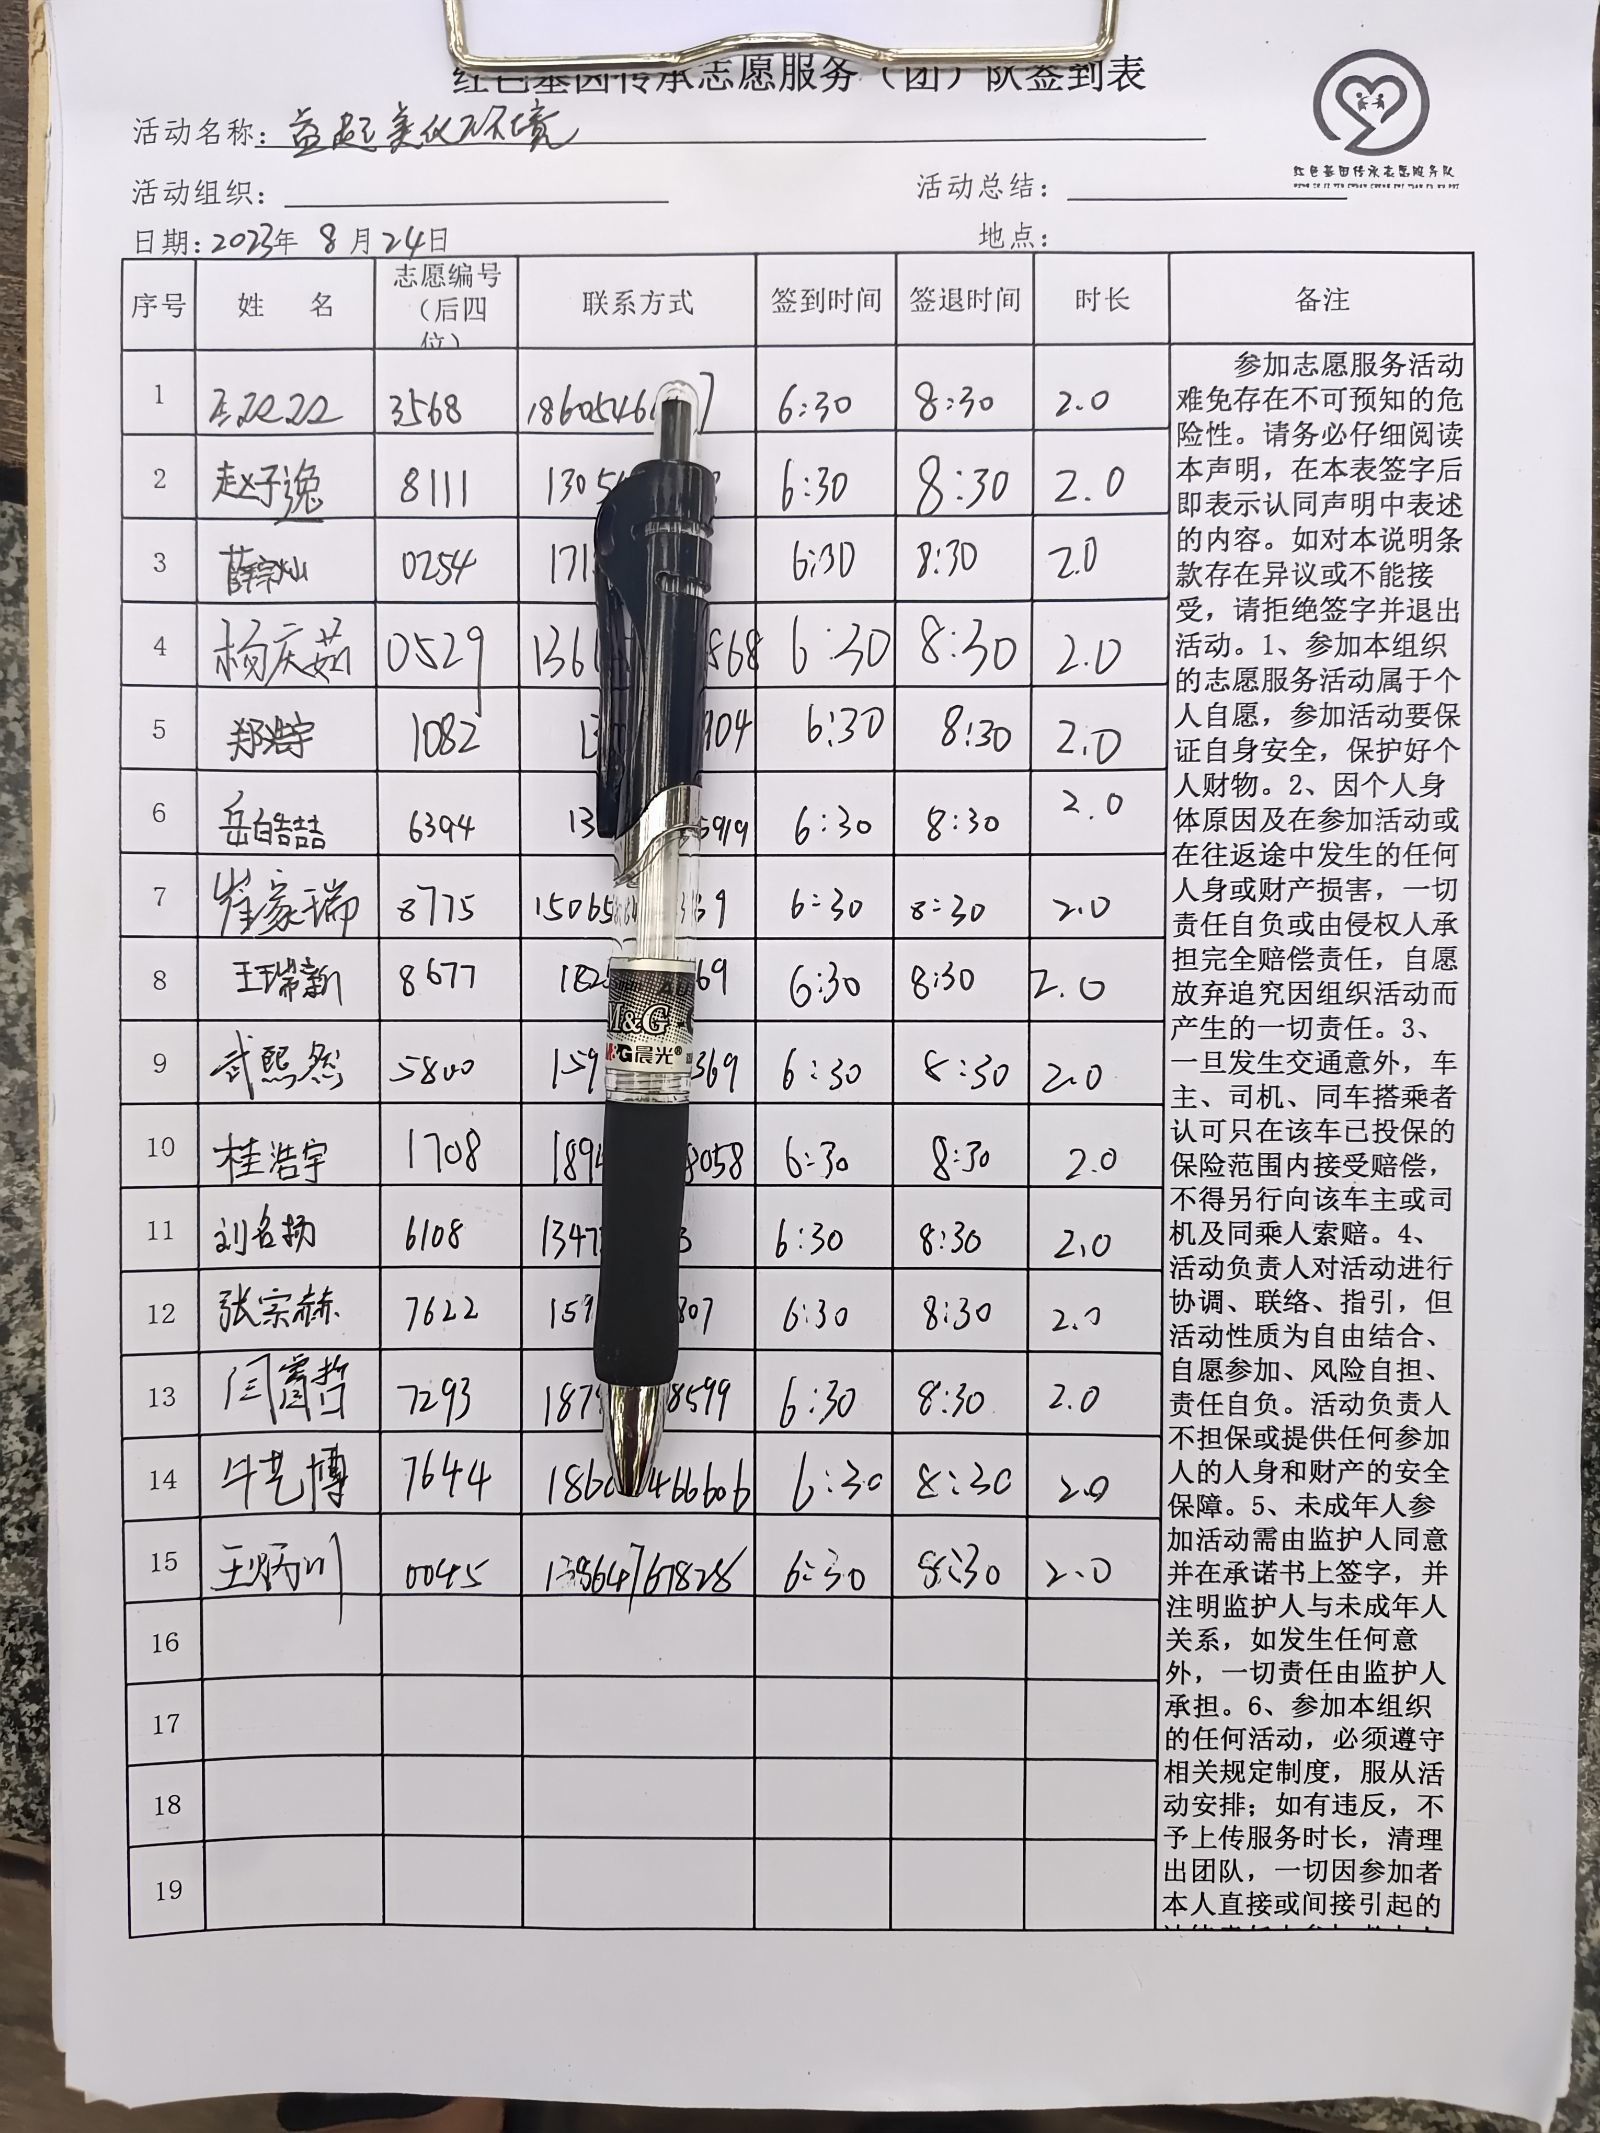 红色基因传承志愿服务（团）队签到表
活动名称：益起美化环境
红色基因传承志愿服务队
活动组织： 活动总结：
日期：2023年 8月24日 地点：
序号 姓 名 志愿编号（后四位） 联系方式 签到时间 签退时间 时长 备注
1 3568 6:30 8:30 2.0
2 赵子逸 8111 6:30 8:30 2.0
3 薛宗灿 0254 6:30 8:30 2.0
4 杨庆茹 0529 6:30 8:30 2.0
5 郑浩宇 1082 6:30 8:30 2.0
6 岳皓喆 6394 6:30 8:30 2.0
7 崔家瑞 8775 6:30 8:30 2.0
8 王瑞新 8677 6:30 8:30 2.0
9 武熙然 5800 6:30 8:30 2.0
10 桂浩宇 1708 6:30 8:30 2.0
11 刘名扬 6108 6:30 8:30 2.0
12 张宗赫 7622 6:30 8:30 2.0
13 7293 6:30 8:30 2.0
14 牛艺博 7644 6:30 8:30 2.0
15 王炳川 0045 6:30 8:30 2.0
16
17
18
19
参加志愿服务活动
难免存在不可预知的危
险性。请务必仔细阅读
本声明，在本表签字后
即表示认同声明中表述
的内容。如对本说明条
款存在异议或不能接
受，请拒绝签字并退出
活动。1、参加本组织
的志愿服务活动属于个
人自愿，参加活动要保
证自身安全，保护好个
人财物。2、因个人身
体原因及在参加活动或
在往返途中发生的任何
人身或财产损害，一切
责任自负或由侵权人承
担完全赔偿责任，自愿
放弃追究因组织活动而
产生的一切责任。3、
一旦发生交通意外，车
主、司机、同车搭乘者
认可只在该车已投保的
保险范围内接受赔偿，
不得另行向该车主或司
机及同乘人索赔。4、
活动负责人对活动进行
协调、联络、指引，但
活动性质为自由结合、
自愿参加、风险自担、
责任自负。活动负责人
不担保或提供任何参加
人的人身和财产的安全
保障。5、未成年人参
加活动需由监护人同意
并在承诺书上签字，并
注明监护人与未成年人
关系，如发生任何意
外，一切责任由监护人
承担。6、参加本组织
的任何活动，必须遵守
相关规定制度，服从活
动安排；如有违反，不
予上传服务时长，清理
出团队，一切因参加者
本人直接或间接引起的
M&G
M&G晨光®